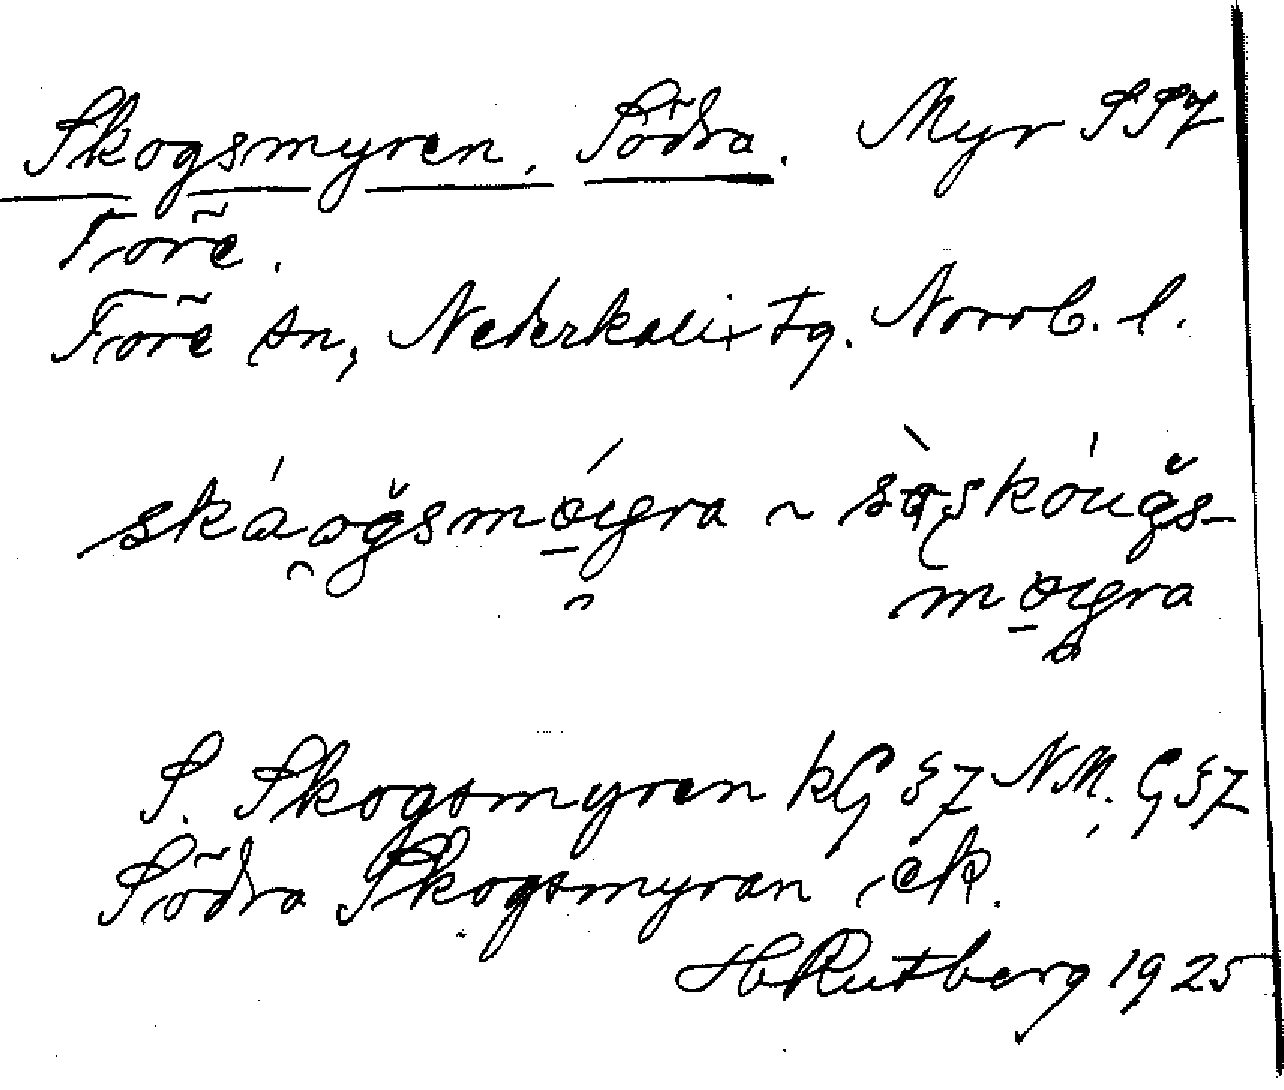 Skogsmyren, Södra. Myr SSZ
Töre.
Töre sn, Nederkalix tg. Norrb. l.
skáoǧsmǿıgra ~ sø̀skóuǧs-
møıgra
S. Skogsmyren kG § 7 NM, G § 7
Södra Skogsmyran ek.
H Rutberg 1925